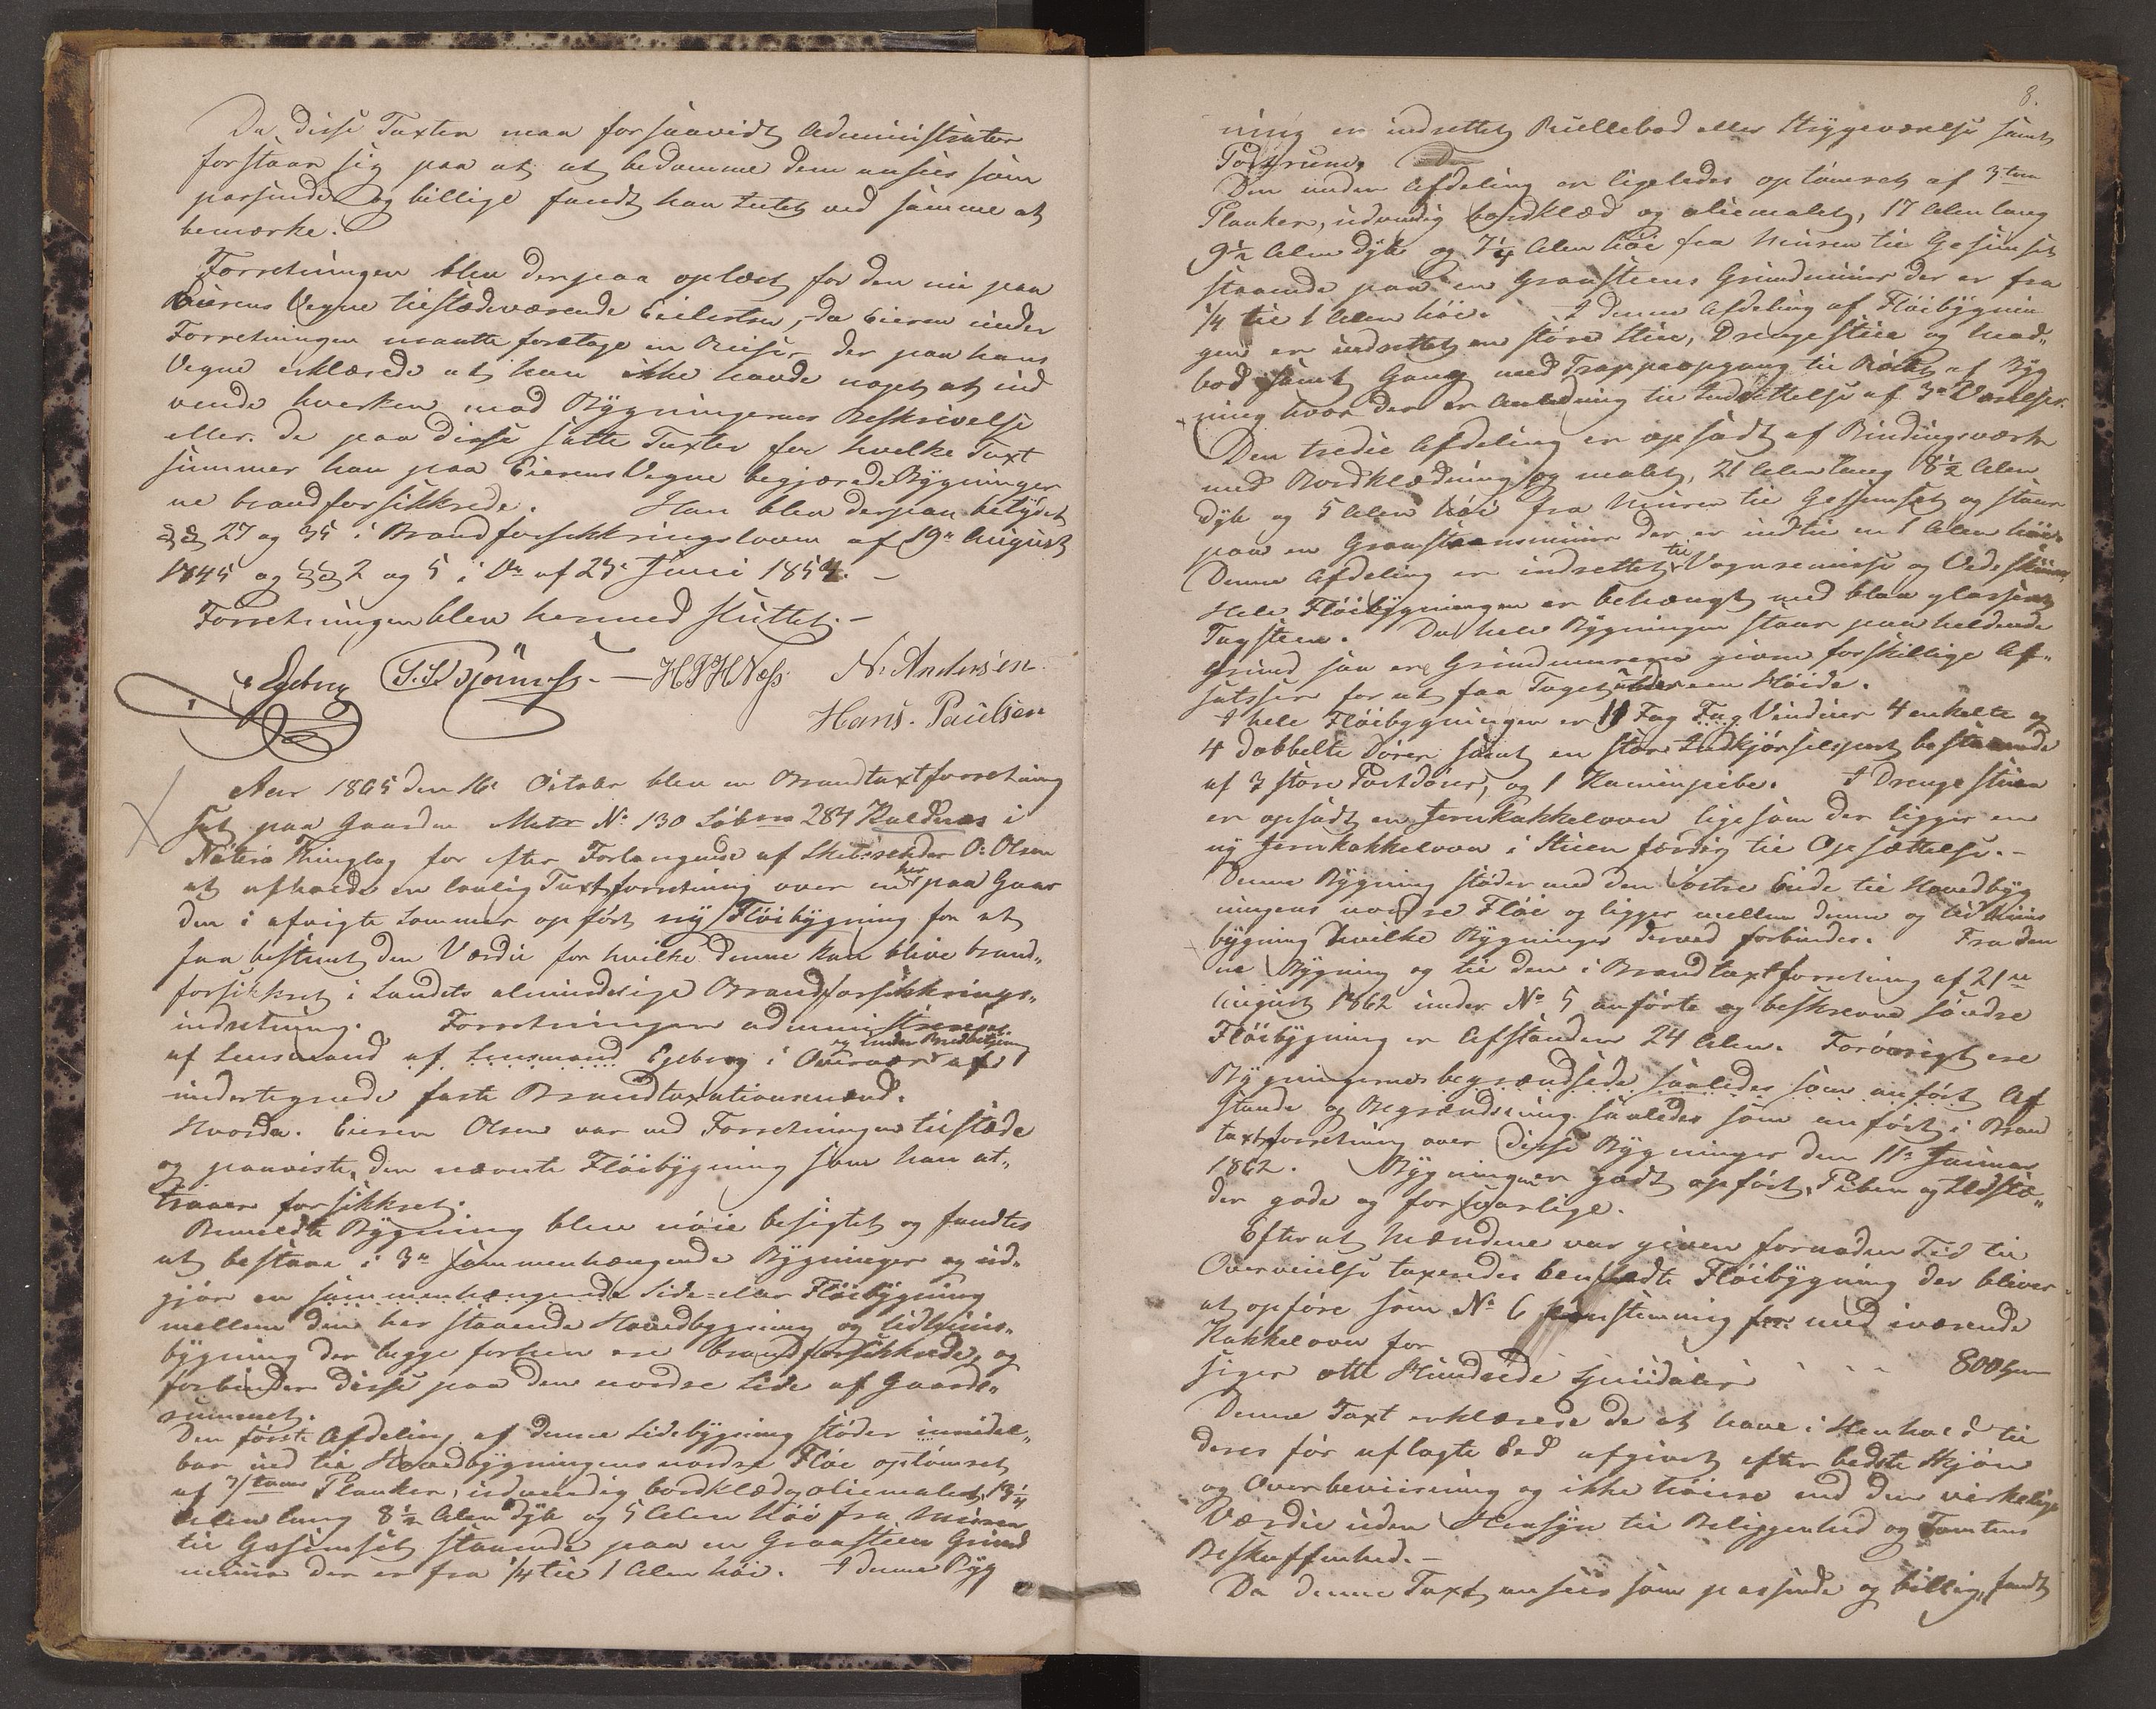 Da disse Taxter maa forsaavidt Administrator
forstaar sig paa at at bedømme dem ansees som
passende og billige fandt han Intet ved samme at
bemærke.
Forretningen blev derpaa oplæst for den nu paa
Eierens Vegne tilstædeværende Eilertsen, da Eieren under
Forretningen maatte foretage en Reise, der paa hans
Vegne erklærede at han ikke havde noget at ind
vende hverken mod Bygningernes Beskrivelse
eller de paa disse satte Taxter for hvilke Taxt
summer han paa Eierens Vegne begjærede Bygninger
ne brandforsikkrede. Han blev derpaa betydet
§§ 27 og 35 i Brandforsikkringsloven af 19n August
1845 og §§ 2 og 5 i Do af 25 Juni 1854. –
Forretningen blev hermed sluttet. –
Egeberg H P H Næss N. Andersen
Hans. Paulsen
Aar 1865 den 16 October blev en Brandtaxtforretning
sat paa Gaarden Matr No 130 Løbno 284 Kaldnæs i
Nøterø Thinglag for efter Forlangende af Skibsrheder O: Olsen
at afholde en lovlig Taxtforretning over en her paa Gaar
den i afvigte Sommer opført ny Fløibygning for at
faa bestemt den Værdie for hvilke denne kan blive brand„
forsikkret i Landets almindelige Brandforsikkrings„
indretning. Forretningen administreredes
og under Bredbetjening
af Lensmand af Lensmand Egeberg i Overvær af
undertegnede faste Brandtaxationsmænd.
Hvorda. Eieren Olsen var ved Forretningen tilstæde
og paaviste den nævnte Fløibygning som han at„
traaer forsikkret.
Bemeldte Bygning blev nøie besigtet og fandtes
at bestaae i 3n sammenhængende Bygninger og ud„
gjør en sammenhængende Side= eller Fløibygning
mellem den her staaende Hovedbygning og Udhuus„
bygning der begge forhen ere brandforsikkrede, og
forbinder disse paa den nordre Side af Gaards„
rummet.
Den første Afdeling af denne Sidebygning støder umidel„
bar ind til Hovedbygningens nordre Fløi optømret
af 3/toms Planker, udvendig bordklæd og oliemalet, 13¼
Alen lang 8½ Alen dyb og 5 Alen høi fra Muren
til Gesimset staaende paa en Graasteen Grund
muur der er fra ¼ til 1 Alen høi. I denne Byg
8.
ning er indrettet Rullebod eller Strygeværelse samt
Den anden Afdeling er ligeledes optømret af 3tom
Planker, udvendig bordklæd og oliemalet, 17 Alen lang
9½ Alen dyb og 7¼ Alen høi fra Muren til Gesimset
staaende paa en Graasteens Grundmuur der er fra
¼ til 1 Alen høi. I denne Afdeling af Fløibygnin
gen er indrettet en større Stue, Drengestue og Mad„
bod samt Gang med Trappeopgang til Røstet af Byg
ning hvor der er Anledning til Indrettelse af 3n Værelser.
Den tredie Afdeling er opsadt af Bindingsværk
med Bordklædning og malet, 21 Alen lang 8½ Alen
dyb og 5 Alen høi fra Muren til Gesimset og staar
paa en Graasteensmuur der er indtil en 1 Alen høi.
Denne Afdeling er indrettet til Vognremisse og Vedskuur,
Hele Fløibygningen er behængt med blaa glasseret
Tagsteen. Da hele Bygningen staar paa heldende
Grund saa ere Grundmurene givne forskillige Af„
satser for at faa Taget under een Høide.
I hele Fløibygningen er 11 Fag Fag Vinduer 4 enkelte og
4 dobbelte Dører samt en stor Indkjørselsport bestaaende
af 3 store Portdører, og 1 Kaminpibe. I Drengestuen
er opsadt en Jernkakkelovn ligesom der ligger en
ny Jernkakkelovn i Stuen færdig til Opsættelse. –
Denne Bygning støder med den østre Ende til Hovedbyg
ningens nordre Fløi og ligger mellem denne og Udhuus
bygning hvilke Bygninger derved forbindes. Fra den
ne Bygning og til den i Brandtaxtforretning af 21de
August 1862 under No 5 anførte og beskrevne søndre
Fløibygning er Afstanden 24 Alen. Forøvrigt ere
Bygningernes begrændsede saaledes som anført Af
stande og Begrændsning saaledes som anført i Brand
taxtforretning over disse Bygninger den 11n Januar
1862. Bygningen er godt opført, Piben og Ildstæ„
der gode og forsvarlige.
Efter at Mændene var given fornøden Tid til
Overveielse taxeredes bemeldte Fløibygning der bliver
at opføre som No 6 paa stemning for med iværende
Kakkelovn for
siger otte Hundrede Speciedaler 800 Spd
Denne Taxt erklærede de at have i Henhold til
deres før aflagte Eed afgivet efter bedste Skjøn
og Overbeviisning og ikke høiere end den virkelige
Værdie uden Hensyn til Beliggenhed og Tomtens
Beskaffenhed. –
Da denne Taxt ansees som passende og billig, fandt